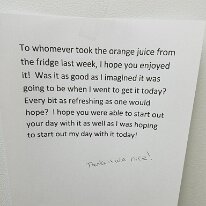 To whomever took the orange juice from
the fridge last week, I hope you enjoyed
it! Was it as good as I imagined it was
going to be when I went to get it today?
Every bit as refreshing as one would
hope? I hope you were able to start out
your day with it as well as I was hoping
to start out my day with it today!
nice!